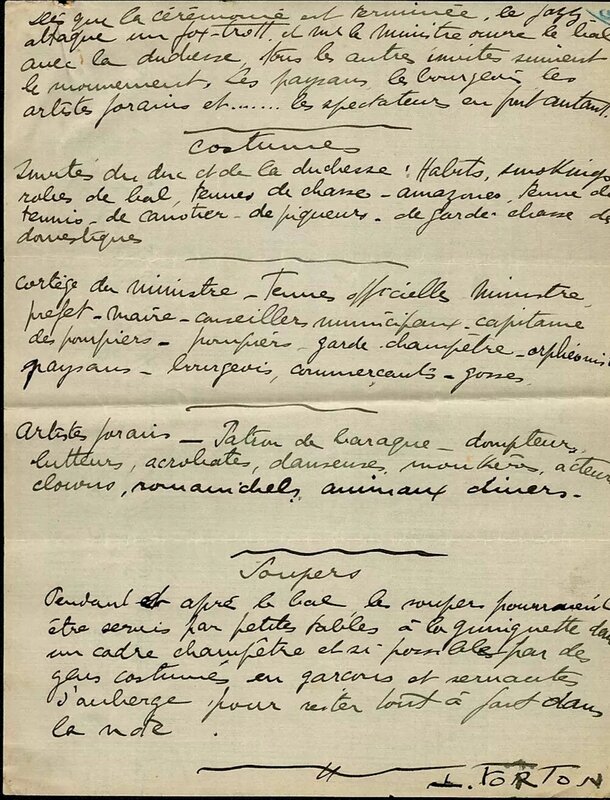 dès que la cérémonie est terminée, le jazz
attaque un fox-trott, et M. le ministre ouvre le bal
avec la duchesse, tous les autres invités suivent
le mouvement. Les paysans, les bourgeois, les
artistes forains et....... les spectateurs en font autant.
Costumes
Invités du duc et de la duchesse : Habits, smokings
robes de bal, tenues de chasse - amazones, tenue de
tennis - de canotier - de piqueurs - de garde-chasse de
domestiques
Cortège du ministre - Tenues officielles ministre,
préfet - maire - conseillers municipaux - capitaine
des pompiers - pompiers - garde-champêtre - orphéonis
paysans - bourgeois, commerçants - gosses.
Artistes forains - Patron de baraque - dompteurs,
lutteurs, acrobates, danseuses, moukères, acteurs
clowns, romanichels, animaux divers -
Soupers
Pendant et après le bal, les soupers pourraient
être servis par petites tables à la guinguette dans
un cadre champêtre et si possible par des
gens costumés en garçons et servantes
d'auberge pour rester tout à fait dans
la note.
L. FORTON